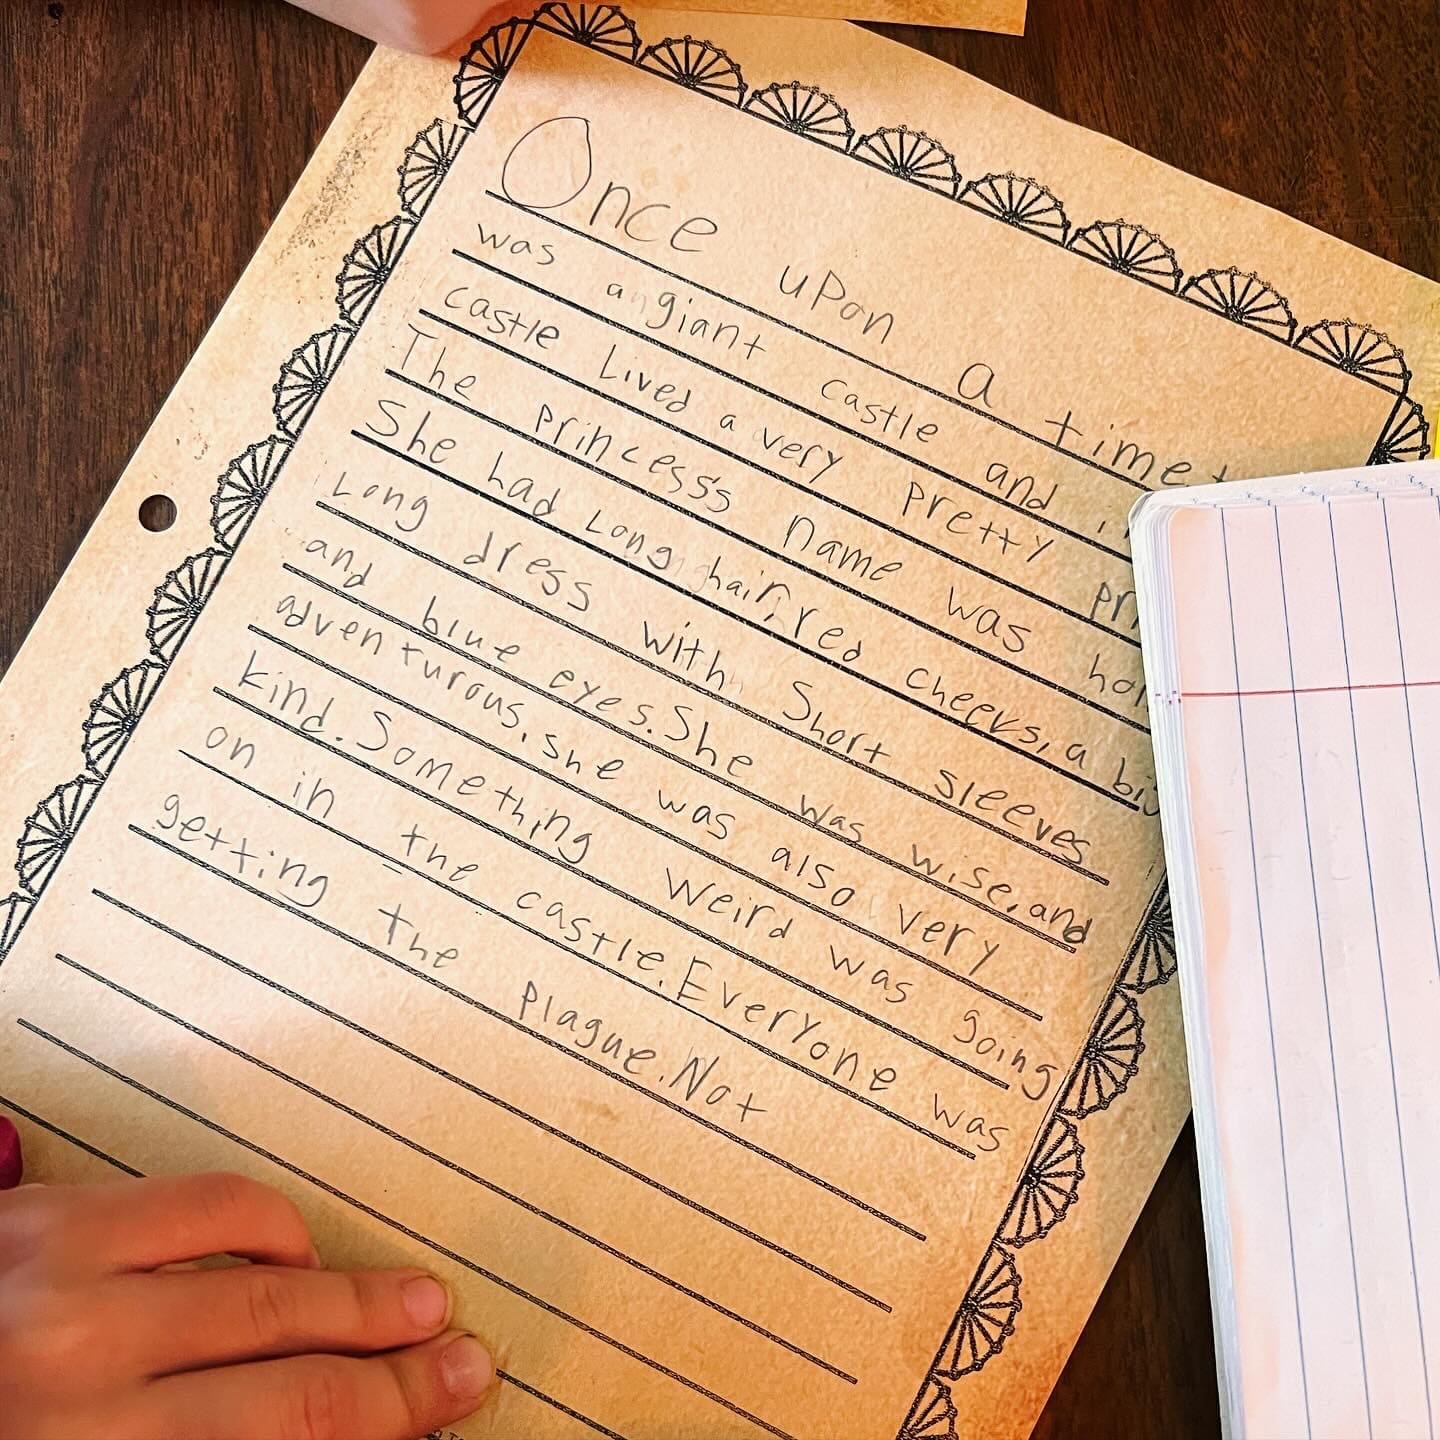 Once upon a time
was a giant castle and
castle Lived a very pretty
The princess's name was
She had Long hair, red cheeks, a
Long dress with Short sleeves
and blue eyes. She was wise, and
adventurous, she was also very
kind. Something weird was going
on in the castle. Everyone was
getting the plague. Not